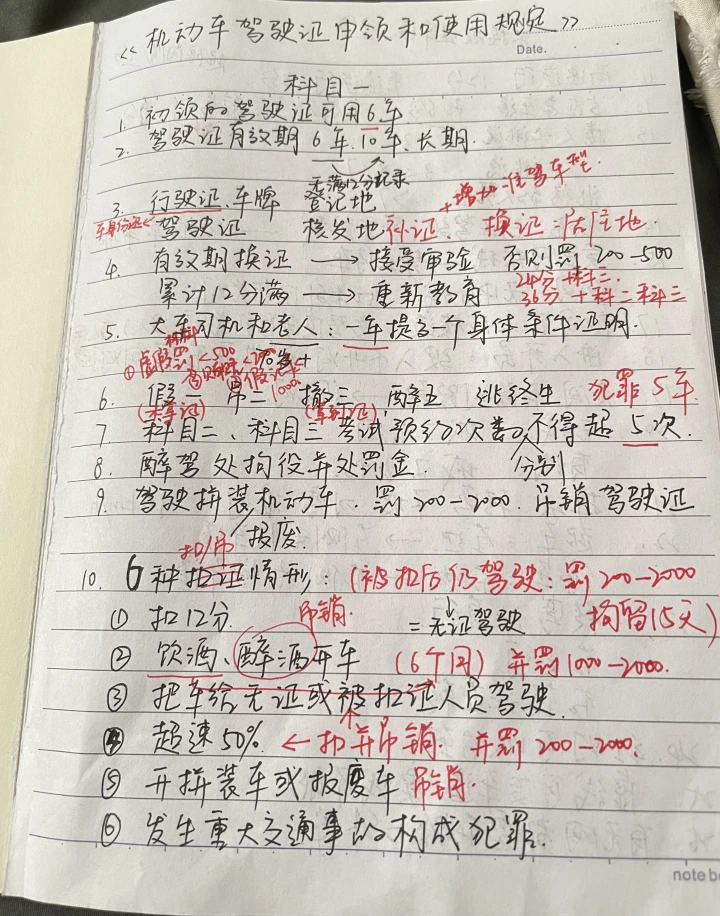 《机动车驾驶证申领和使用规定》
Date.
科目一
1. 初领的驾驶证可用6年
2. 驾驶证有效期 6年、10年、长期.
无满12分记录
+增加准驾车型.
3. 行驶证、车牌 登记地
驾驶证 核发地 补证、换证:居住地.
4. 有效期换证 → 接受审验 否则罚 200-500
24分+科三.
累计12分满 → 重新教育 36分+科二科三
5. 大车司机和老人:一年提交一个身体条件证明.
70岁+
6. 假一 吊二 撤三 醉五 逃终生 犯罪5年
(未拿证) (拿到证)
7 科目二、科目三 考试预约次数不得超5次.
分别
8. 醉驾处拘役并处罚金.
9. 驾驶拼装机动车. 罚200-2000. 吊销驾驶证
/报废.
扣/吊
10. 6种扣证情形:(被扣后仍驾驶:罚200-2000
① 扣12分. 吊销. =无证驾驶 拘留15天)
② 饮酒、醉酒开车 (6个月) 并罚1000-2000.
③ 把车给无证或被扣证人员驾驶.
④ 超速50%. ←扣并吊销. 并罚 200-2000.
⑤ 开拼装车或报废车 吊销.
⑥ 发生重大交通事故构成犯罪.